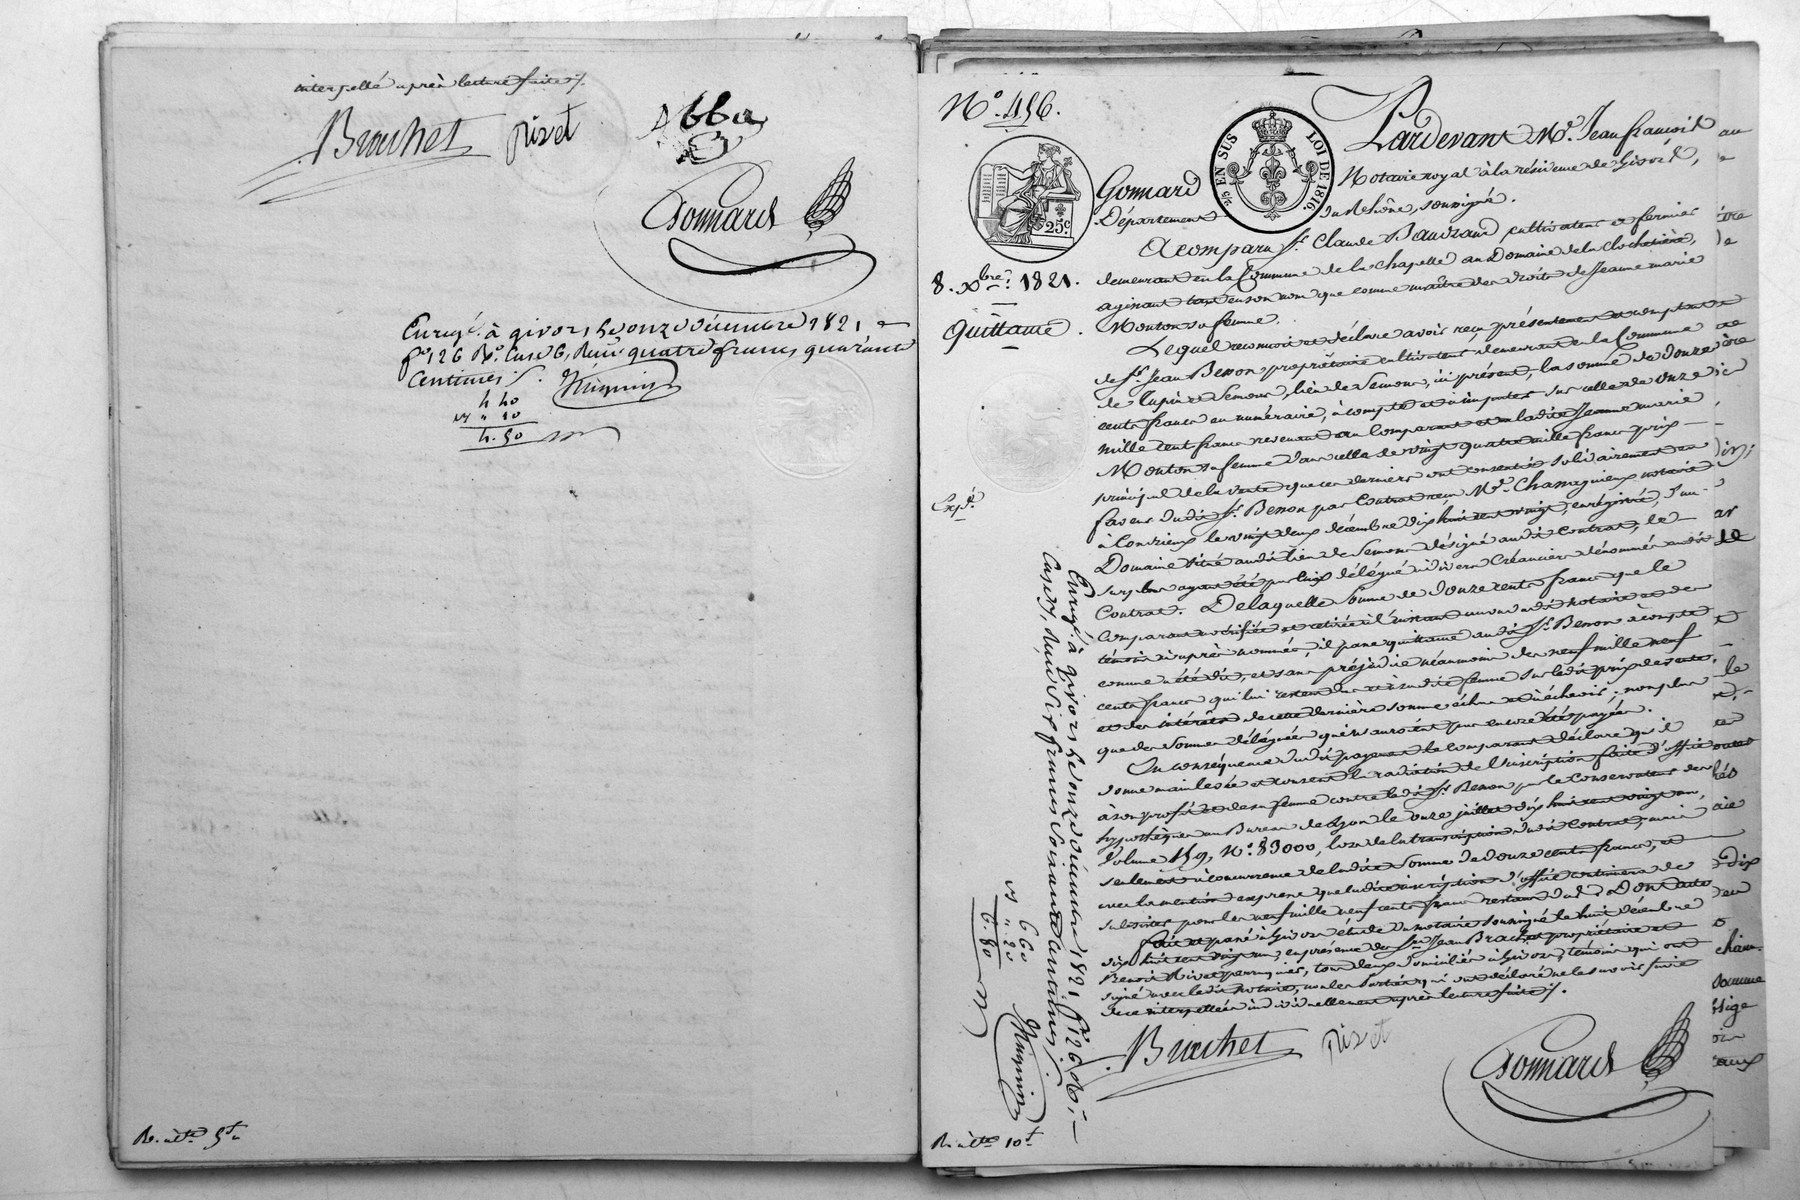 interpellé après lecture faite ./.
Brachet Rivet Abba
Gonnard
Enregé. à givors, le onze décembre 1821,
fo. 126 Ro. Case 6, Reçu quatre francs, quarante
centimes ./.
4 40
" 10
4. 50
R. à Ste.
No. 456.
25c.
2/5 EN SUS LOI DE 1816.
8. Xbre. 1821.
Quittance.
Expé.
Pardevant Me. Jean françois
Gonnard Notaire royal à la résidence de Givors,
Département du Rhône, soussigné.
A comparu Sr. Claude Bauzand, cultivateur et fermier
demeurant en la Commune de la Chapelle au Domaine de la
agissant tant en son nom que comme maître des droits de Jeanne marie
Mouton sa femme.
Lequel reconnoit et déclare avoir reçu présentement et comptant
de Sr. Jean Besson propriétaire cultivateur demeurant en la Commune
de Tupin et Semons, lieu de Semons, ici présent, la somme de douze
cents francs en numéraire, à compte et à imputer sur celle de onze
mille cent francs revenant au Comparant et à ladite Jeanne marie
Mouton sa femme dans celle de vingt quatre mille francs prix
principal de la vente que ces derniers ont consentie solidairement en
faveur dudit Sr. Besson par Contrat reçu Me. Chassagnieux notaire
à Condrieux le vingt deux décembre dix huit cent vingt, enrégistré, d'un
Domaine situé audit lieu de Semons désigné audit Contrat, le
surplus ayant été par eux délégué à divers Créanciers dénommés audit
Contrat. De laquelle somme de douze cents francs que le
Comparant a vérifiée et retirée à l'instant au vu dudit notaire et des
témoins ci après nommés, il passe quittance audit Sr. Besson à compte
comme a été dit, et sans préjudice néanmoins des neuf mille neuf
cents francs qui lui restent dus et à sadite femme sur ledit prix de vente,
et des intérêts de cette dernière somme échus et à échoir; non plus
que des sommes déléguées qui n'auroient pas encore été payées.
En conséquence dudit payement le comparant déclare qu'il
donne mainlevée et consent la radiation de l'inscription faite d'office
à son profit et de sa femme contre ledit Sr. Besson par le Conservateur des
hypothèques au Bureau de Lyon le onze juillet dix huit cent vingt un,
Volume 159, No. 83000, lors de la transcription dudit Contrat, mais
seulement à concurrence de ladite somme de douze cents francs, et
avec la mention expresse que ladite inscription d'office continuera de
subsister pour les neuf mille neuf cents francs restans dus. Dont acte
fait et passé à Givors étude du notaire soussigné le huit décembre
dix huit cent vingt un, en présence des Srs. Jean Brachet propriétaire et
Benoit Rivet perruquier, tous deux domiciliés à Givors, témoins qui ont
signé avec ledit notaire, non les parties qui ont déclaré ne le savoir faire
de ce interpellées individuellement après lecture faite ./.
Brachet Rivet
Gonnard
Enregé. à givors le onze décembre 1821, fo. 126 Ro.
Case 7, Reçu six francs soixante centimes ./.
6 60
" 20
6. 80
R. à Ste. 10